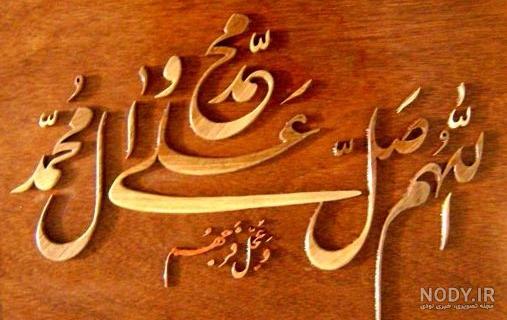 اللّهُم صَلِّ عَلی مُحمّد و آل مُحمّد
و عَجّل فَرَجَهُم
NODY.IR
مجله تصویری، خبری نودی